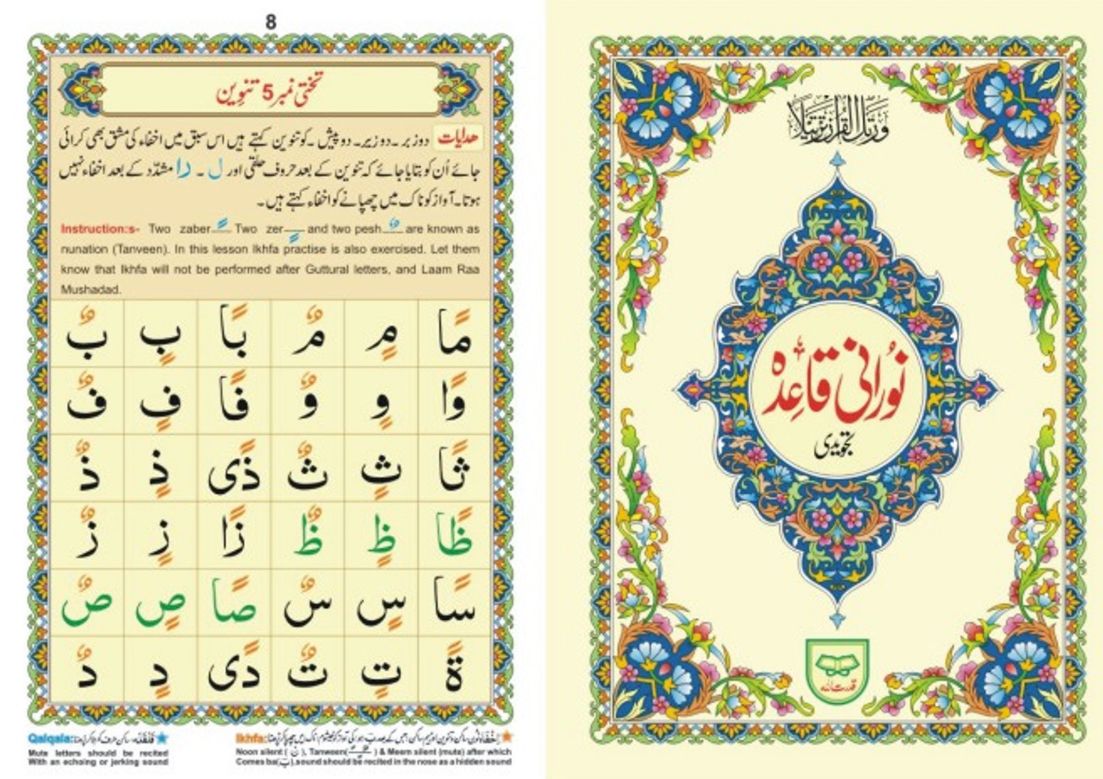 8
تختی نمبر 5 تنوین
ھدایات دو زبر۔ دو زیر۔ دو پیش۔ کو تنوین کہتے ہیں اس سبق میں اخفاء کی مشق بھی کرائی
جائے اُن کو بتایا جائے کہ تنوین کے بعد حروف حلقی اور ل ۔ را مشدّد کے بعد اخفاء نہیں
ہوتا۔ آواز کو ناک میں چھپانے کو اخفاء کہتے ہیں۔
Instruction:s- Two zaber ـً Two zer ـٍ and two pesh ـٌ are known as
nunation (Tanveen). In this lesson Ikhfa practise is also exercised. Let them
know that Ikhfa will not be performed after Guttural letters, and Laam Raa
Mushadad.
مًا مٍ مٌ بًا بٍ بٌ
وًا وٍ وٌ فًا فٍ فٌ
ثًا ثٍ ثٌ ذًی ذٍ ذٌ
ظًا ظٍ ظٌ زًا زٍ زٌ
سًا سٍ سٌ صًا صٍ صٌ
ةً تٍ تٌ دًی دٍ دٌ
Ikhfa:
Noon silent ( نْ ), Tanween( ) & Meem silent (mute) after which
Comes ba(بَ), sound should be recited in the nose as a hidden sound
Qalqala:
Mute letters should be recited
With an echoing or jerking sound
وَرَتِّلِ الْقُرْاٰنَ تَرْتِیْلًا
نُورانی قاعِدہ
تجویدی
قدرت اللہ